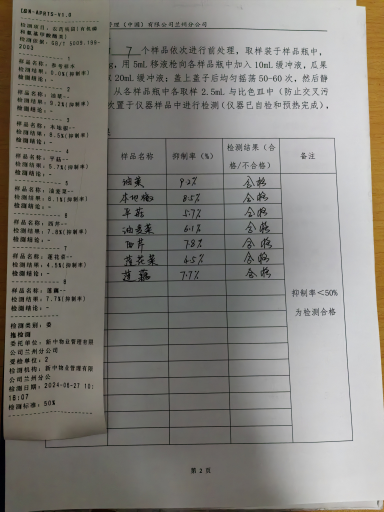 LDN-APHTS-V1.0
检测依据: GB/T 5009.199-
2003
1
检测结果: 0.0%(抑制率)
检测结论: --
2
样品名称: 油菜--
检测结果: 9.2%(抑制率)
检测结论: --
3
检测结果: 8.5%(抑制率)
检测结论: --
4
样品名称: 平菇--
检测结果: 5.7%(抑制率)
检测结论: --
5
样品名称: 油麦菜--
检测结果: 6.1%(抑制率)
检测结论: --
6
样品名称: 西芹--
检测结果: 7.8%(抑制率)
检测结论: --
7
样品名称: 莲花菜--
检测结果: 4.5%(抑制率)
检测结论: --
8
样品名称: 莲藕--
检测结果: 7.7%(抑制率)
检测结论: --
检测类别: 委
托检测
委托单位: 新中物业管理有限
公司兰州分公司
受检单位: 2
检测机构: 新中物业管理有限
公司兰州分公
检测日期: 2024-06-27 10:
18:07
检测标准: 50%
管理（中国）有限公司兰州分公司
7 个样品依次进行前处理，取样装于样品瓶中，
用 5mL 移液枪向各样品瓶中加入 10mL 缓冲液，瓜果
20mL 缓冲液；盖上盖子后均匀摇荡 50-60 次，然后静
从各样品瓶中各取样 2.5mL 与比色皿中（防止交叉污
次置于仪器样品中进行检测（仪器已自检和预热完成），
样品名称 抑制率（%） 检测结果（合格/不合格） 备注
油菜 9.2% 合格
8.5% 合格
平菇 5.7% 合格
油麦菜 6.1% 合格
西芹 7.8% 合格
莲花菜 4.5% 合格
莲藕 7.7% 合格
抑制率<50%
为检测合格
第 2 页